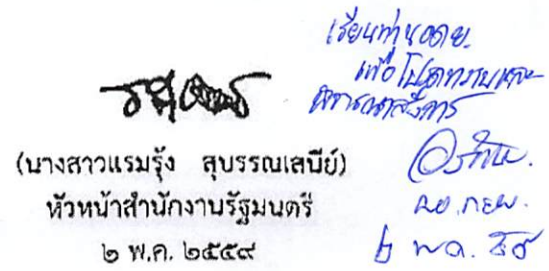 (นางสาวแรมรุ้ง สุบรรณเสนีย์)
หัวหน้าสำนักงานรัฐมนตรี
๒ พ.ค. ๒๕๕๙
เรียนท่าน อดย.
เพื่อโปรดทราบและ
พิจารณาสั่งการ
๒ พ.ค. ๕๙